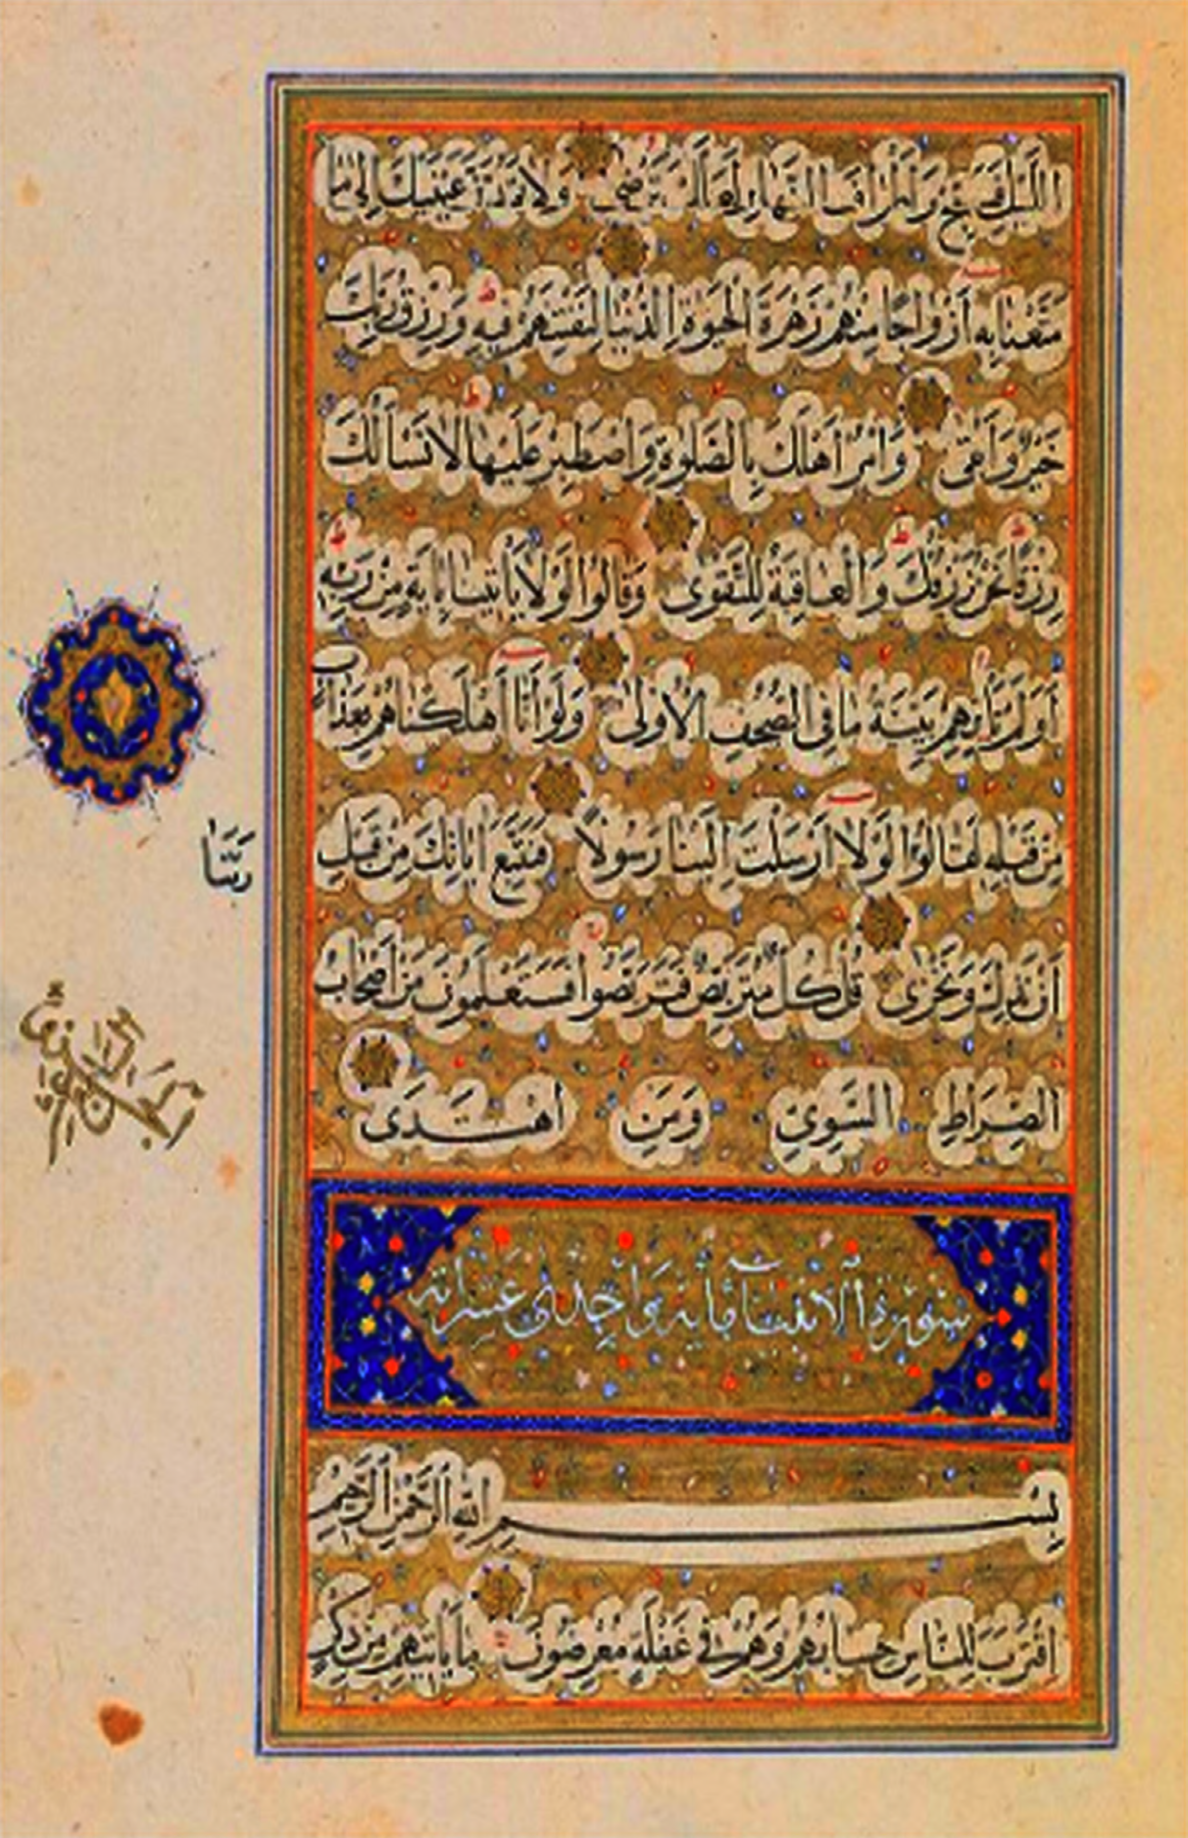 اللَّيْلِ فَسَبِّحْ وَاَطْرَافَ النَّهَارِ لَعَلَّكَ تَرْضٰى وَلَا تَمُدَّنَّ عَيْنَيْكَ اِلٰى مَا
مَتَّعْنَا بِهِ اَزْوَاجًا مِنْهُمْ زَهْرَةَ الْحَيٰوةِ الدُّنْيَا لِنَفْتِنَهُمْ فِيهِ وَرِزْقُ رَبِّكَ
خَيْرٌ وَاَبْقٰى وَاْمُرْ اَهْلَكَ بِالصَّلٰوةِ وَاصْطَبِرْ عَلَيْهَا لَا نَسْاَلُكَ
رِزْقًا نَحْنُ نَرْزُقُكَ وَالْعَاقِبَةُ لِلتَّقْوٰى وَقَالُوا لَوْلَا يَاْتِينَا بِاٰيَةٍ مِنْ رَبِّهِ
اَوَلَمْ تَاْتِهِمْ بَيِّنَةُ مَا فِى الصُّحُفِ الْاُولٰى وَلَوْ اَنَّا اَهْلَكْنَاهُمْ بِعَذَابٍ
مِنْ قَبْلِهِ لَقَالُوا لَوْلَا اَرْسَلْتَ اِلَيْنَا رَسُولًا فَنَتَّبِعَ اٰيَاتِكَ مِنْ قَبْلِ
رَبَّنَا
اَنْ نَذِلَّ وَنَخْزٰى قُلْ كُلٌّ مُتَرَبِّصٌ فَتَرَبَّصُوا فَسَتَعْلَمُونَ مَنْ اَصْحَابُ
الصِّرَاطِ السَّوِىِّ وَمَنِ اهْتَدٰى
سورة الانبياء مائة واحدى عشر اية
بِسْمِ اللّٰهِ الرَّحْمٰنِ الرَّحِيمِ
اِقْتَرَبَ لِلنَّاسِ حِسَابُهُمْ وَهُمْ فِى غَفْلَةٍ مُعْرِضُونَ مَا يَاْتِيهِمْ مِنْ ذِكْرٍ